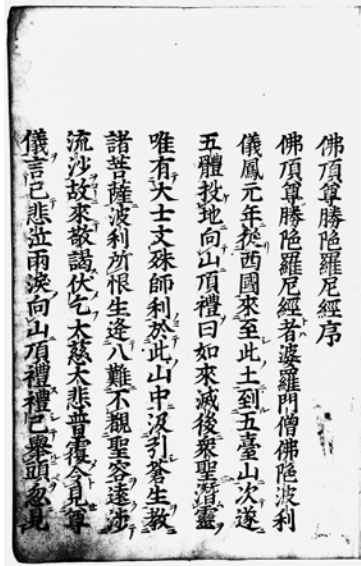 佛頂尊勝陁羅尼經序
佛頂尊勝陁羅尼經者婆羅門僧佛陁波利
儀鳳元年從西國來至此土到五臺山次遂
五體投地向山頂禮曰如來滅後衆聖潛靈
唯有大士文殊師利於此山中汲引蒼生教
諸菩薩波利所恨生逢八難不覩聖容遠涉
流沙故來敬謁伏乞大慈大悲普覆令見尊
儀言已悲泣雨淚向山頂禮禮已舉頭忽見